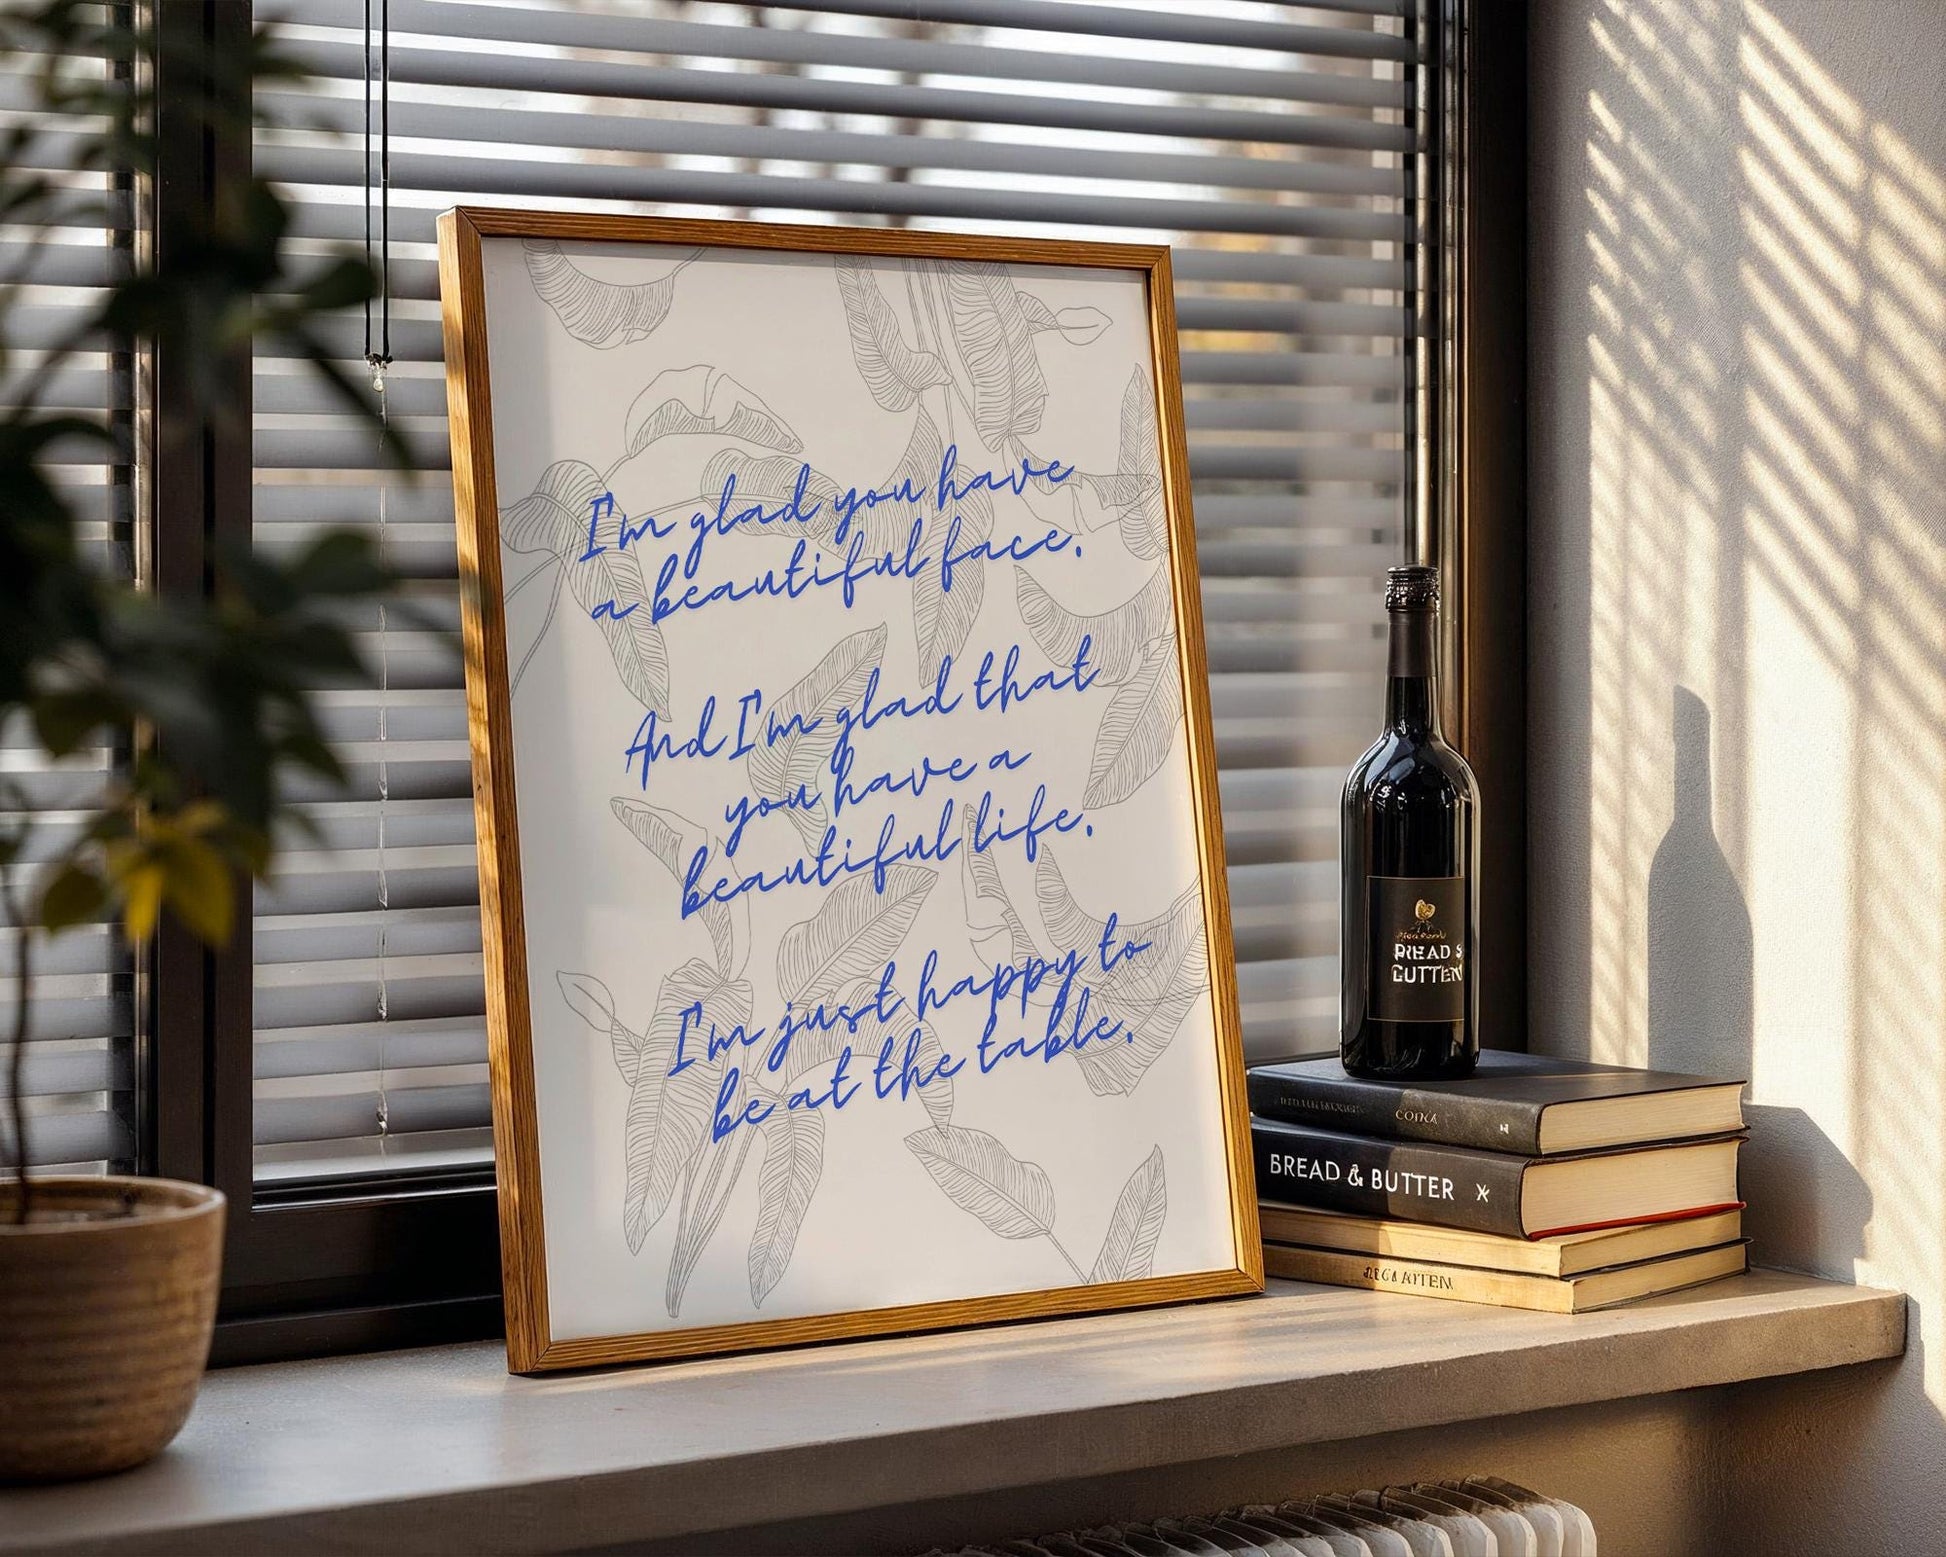 I'm glad you have
a beautiful face.
And I'm glad that
you have a
beautiful life.
I'm just happy to
be at the table.
BREAD &
BUTTER
BREAD & BUTTER